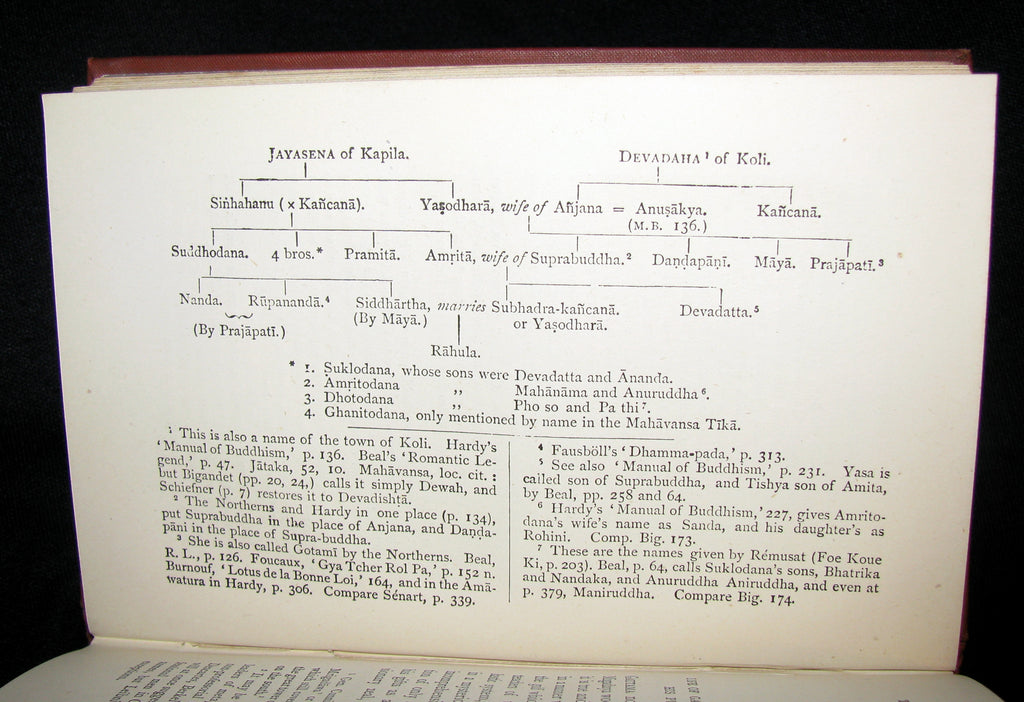 JAYASENA of Kapila. DEVADAHA ¹ of Koli.
Siṅhahanu ( × Kañcanā). Yaṣodharā, wife of Añjana = Anuṣākya. Kañcanā.
(M.B. 136.)
Suddhodana. 4 bros.* Pramitā. Amṛitā, wife of Suprabuddha.² Daṇḍapāṇī. Māyā. Prajāpatī.³
Nanda. Rūpanandā.⁴ Siddhārtha, marries Subhadra-kañcanā. Devadatta.⁵
(By Prajāpatī.) (By Māyā.) or Yaṣodharā.
Rāhula.
* 1. Ṣuklodana, whose sons were Devadatta and Ānanda.
2. Amṛitodana ,, Mahānāma and Anuruddha ⁶.
3. Dhotodana ,, Pho so and Pa thi ⁷.
4. Ghanitodana, only mentioned by name in the Mahāvansa Tīkā.
¹ This is also a name of the town of Koli. Hardy's
'Manual of Buddhism,' p. 136. Beal's 'Romantic Le-
gend,' p. 47. Jātaka, 52, 10. Mahāvansa, loc. cit. :
but Bigandet (pp. 20, 24,) calls it simply Dewah, and
Schiefner (p. 7) restores it to Devadishṭā.
² The Northerns and Hardy in one place (p. 134),
put Suprabuddha in the place of Anjana, and Daṇḍa-
pāni in the place of Supra-buddha.
³ She is also called Gotamī by the Northerns. Beal,
R. L., p. 126. Foucaux, 'Gya Tcher Rol Pa,' p. 152 n.
Burnouf, 'Lotus de la Bonne Loi,' 164, and in the Amā-
watura in Hardy, p. 306. Compare Sénart, p. 339.
⁴ Fausböll's 'Dhamma-pada,' p. 313.
⁵ See also 'Manual of Buddhism,' p. 231. Yasa is
called son of Suprabuddha, and Tishya son of Amita,
by Beal, pp. 258 and 64.
⁶ Hardy's 'Manual of Buddhism,' 227, gives Amrito-
dana's wife's name as Sanda, and his daughter's as
Rohini. Comp. Big. 173.
⁷ These are the names given by Rémusat (Foe Koue
Ki, p. 203). Beal, p. 64, calls Suklodana's sons, Bhatrika
and Nandaka, and Anuruddha Aniruddha, and even at
p. 379, Maniruddha. Compare Big. 174.